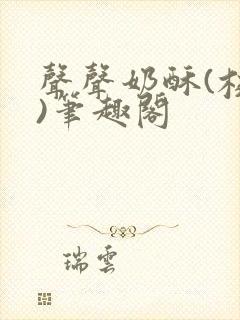 聲聲奶酥(校
)筆趣閣
瑞雲